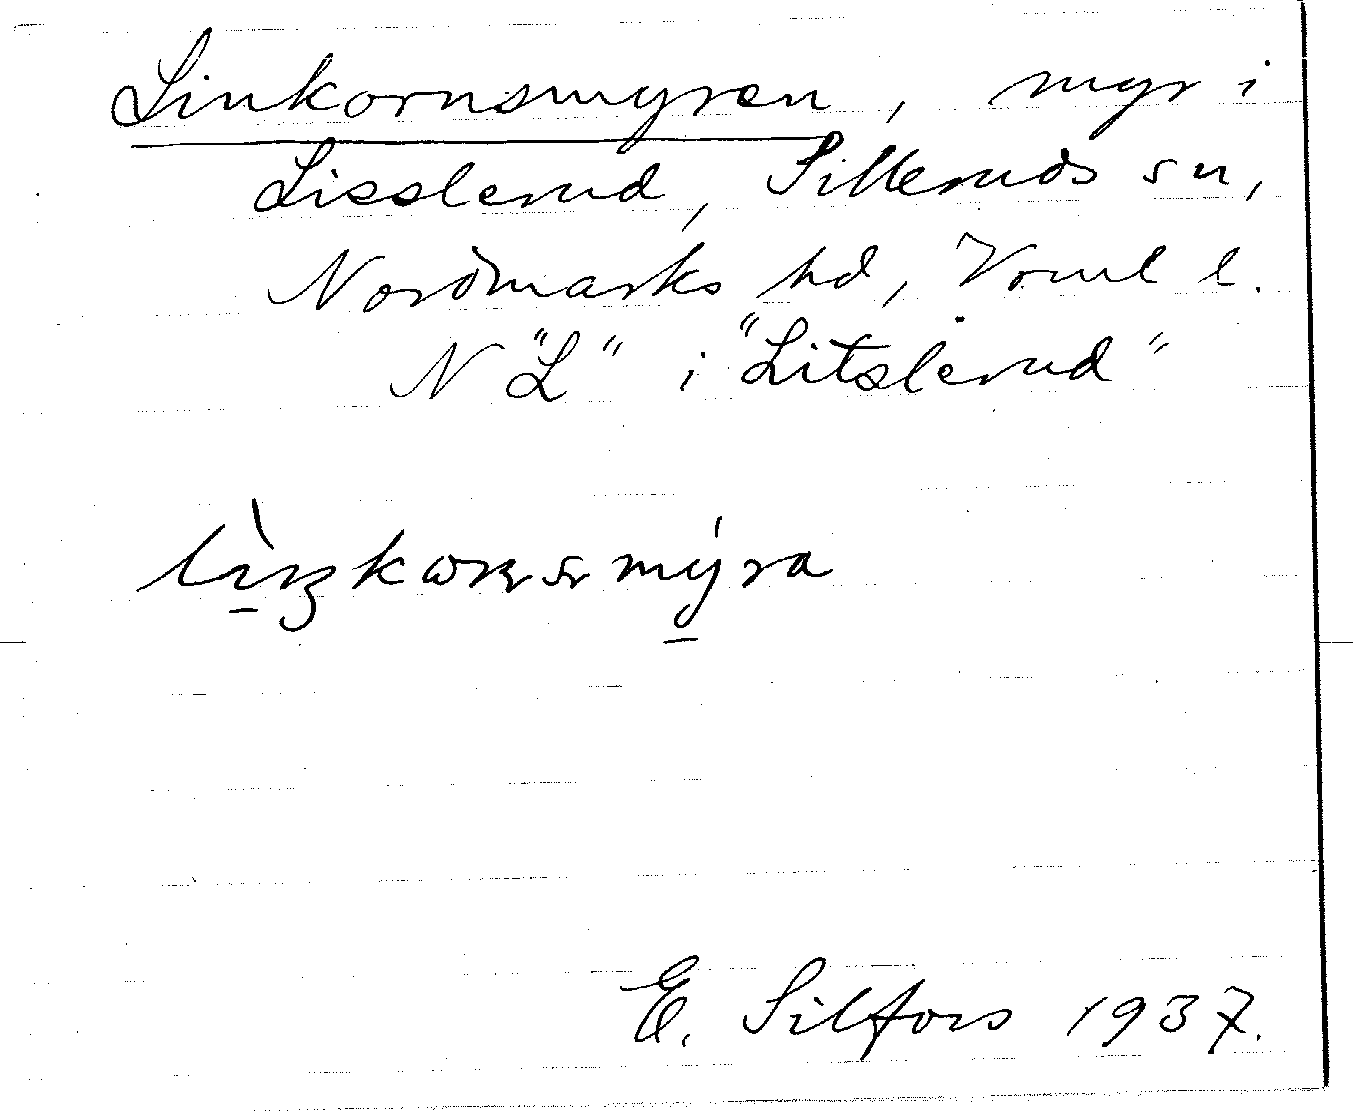 Linkornsmyren, myr i
Lisslerud, Silleruds sn,
Nordmarks hd, Vrml l.
N "L" i "Litslerud"
E. Silfors 1937.